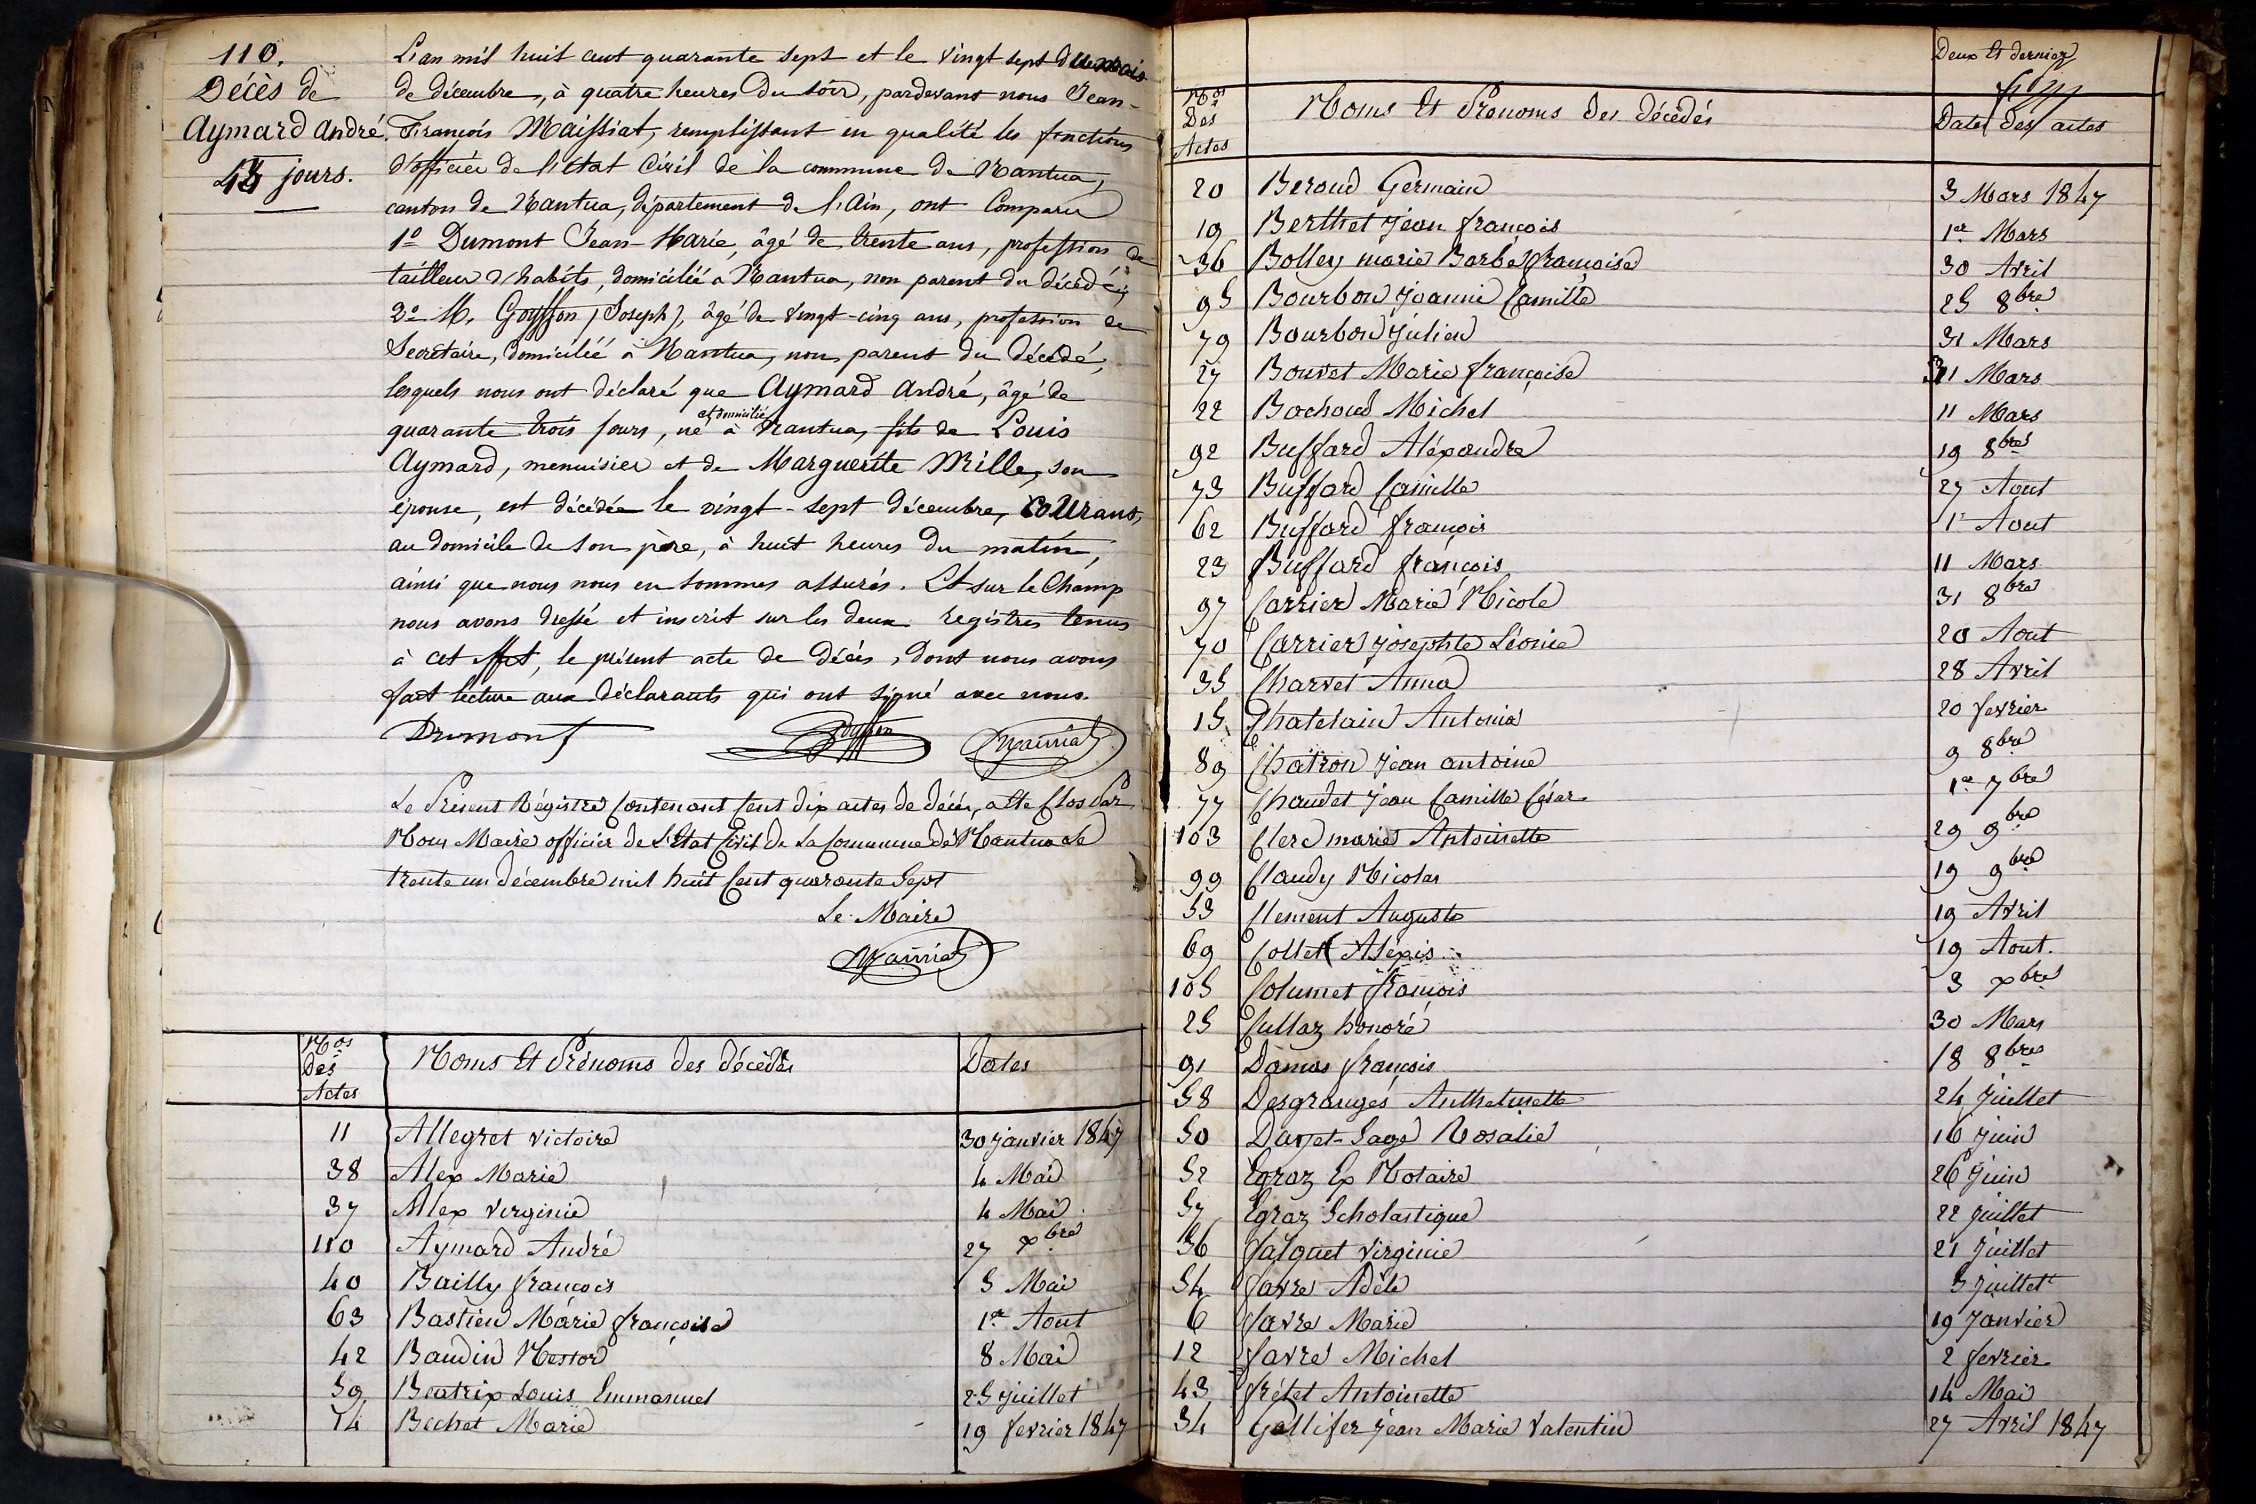 110.
Décès de
Aymard André.
43 jours.
L'an mil huit cent quarante sept et le vingt sept du mois
de décembre, à quatre heures du soir, pardevant nous Jean-
François Maissiat, remplissant en qualité les fonctions
d'officier de l'état civil de la commune de Nantua,
canton de Nantua, département de l'Ain, ont comparu
1º Dumont Jean-Marie, âgé de trente ans, profession de
tailleur d'habits, domicilié à Nantua, non parent du décédé;
2º M. Goyffon (Joseph), âgé de vingt-cinq ans, profession de
Secrétaire, domicilié à Nantua, non parent du décédé,
lesquels nous ont déclaré que Aymard André, âgé de
quarante trois jours, né et domicilié à Nantua, fils de Louis
Aymard, menuisier et de Marguerite Mille, son
épouse, est décédée le vingt-sept décembre, courant,
au domicile de son père, à huit heures du matin,
ainsi que nous nous en sommes assurés. Et sur le champ
nous avons dressé et inscrit sur les deux registres tenus
à cet effet, le présent acte de décès, dont nous avons
fait lecture aux déclarants qui ont signé avec nous.
Dumont Goyffon Maissiat
Le Présent Régistre Contenant Cent dix actes de décès, a été Clos Par
Nous Maire officier de L'Etat Civil de La Commune de Nantua Le
trente un décembre mil huit Cent quarante Sept
Le Maire
Maissiat
Nos Des Actes Noms Et Prénoms des décédés Dates
11 Allegret victoire 30 janvier 1847
38 Alex Marie 4 Mai
37 Alex virginie 4 Mai
110 Aymard André 27 xbre
40 Bailly françois 5 Mai
63 Bastien Marie françoise 1er Aout
42 Baudin Nestor 8 Mai
59 Beatrix Louis Emmanuel 25 juillet
14 Bechet Marie 19 fevrier 1847
Deux et dernier
Nos Des Actes Noms Et Prenoms des décédés Dates des actes
20 Beroud Germain 3 Mars 1847
19 Berthet jean françois 1er Mars
36 Bolley marie Barbe françoise 30 Avril
95 Bourbon joanni Camille 25 8bre
79 Bourbon julien 31 Mars
27 Bouvet Marie françoise 31 Mars
22 Bochoud Michel 11 Mars
92 Buffard Aléxandre 19 8bre
73 Buffard Camille 27 Aout
62 Buffard françois 1r Aout
23 Buffard françois 11 Mars
97 Carrier Marie Nicole 31 8bre
70 Carrier josephte Léonie 20 Aout
35 Charvet Anna 28 Avril
15 Chatelain Antonia 20 fevrier
89 Chatron jean antoine 9 8bre
77 Chaudet jean Camille César 1er 7bre
103 Clerc marie Antoinette 29 9bre
99 Claudy Nicolas 19 9bre
33 Clement Auguste 19 Avril
69 Collet Aléxis 19 Aout.
105 Columet françois 3 xbre
25 Cullaz honoré 30 Mars
91 Damas françois 18 8bre
58 Desgranges Anthelmette 24 juillet
50 Durfet-Sage Rosalie 16 juin
52 Egraz Ex Notaire 26 juin
57 Egraz Scholastique 22 juillet
56 falquet virginie 21 juillet
54 favre Adèle 3 juillet
6 favre Marie 19 janvier
12 favre Michel 2 fevrier
43 frétet Antoinette 14 Mai
34 Gallifer jean Marie Valentin 27 Avril 1847